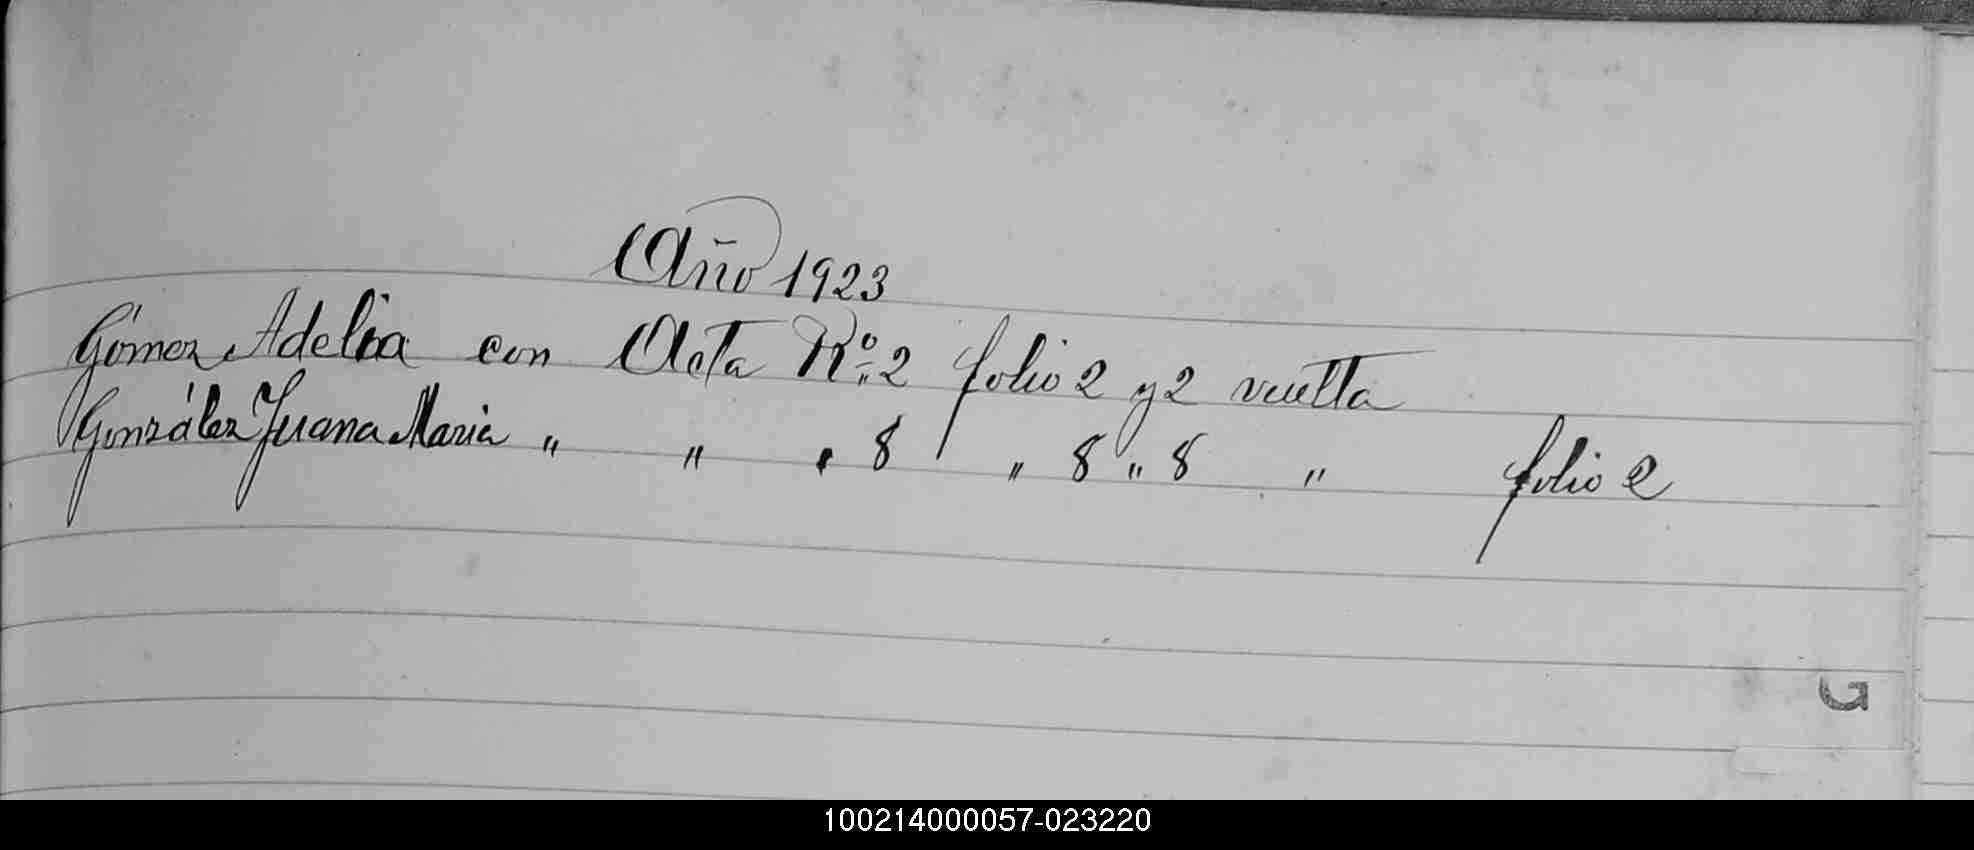 Año 1923
Gómez Adelia con Acta No. 2 folio 2 y 2 vuelta
González Juana Maria " " " 8 " 8 " 8 " folio 2
G
100214000057-023220